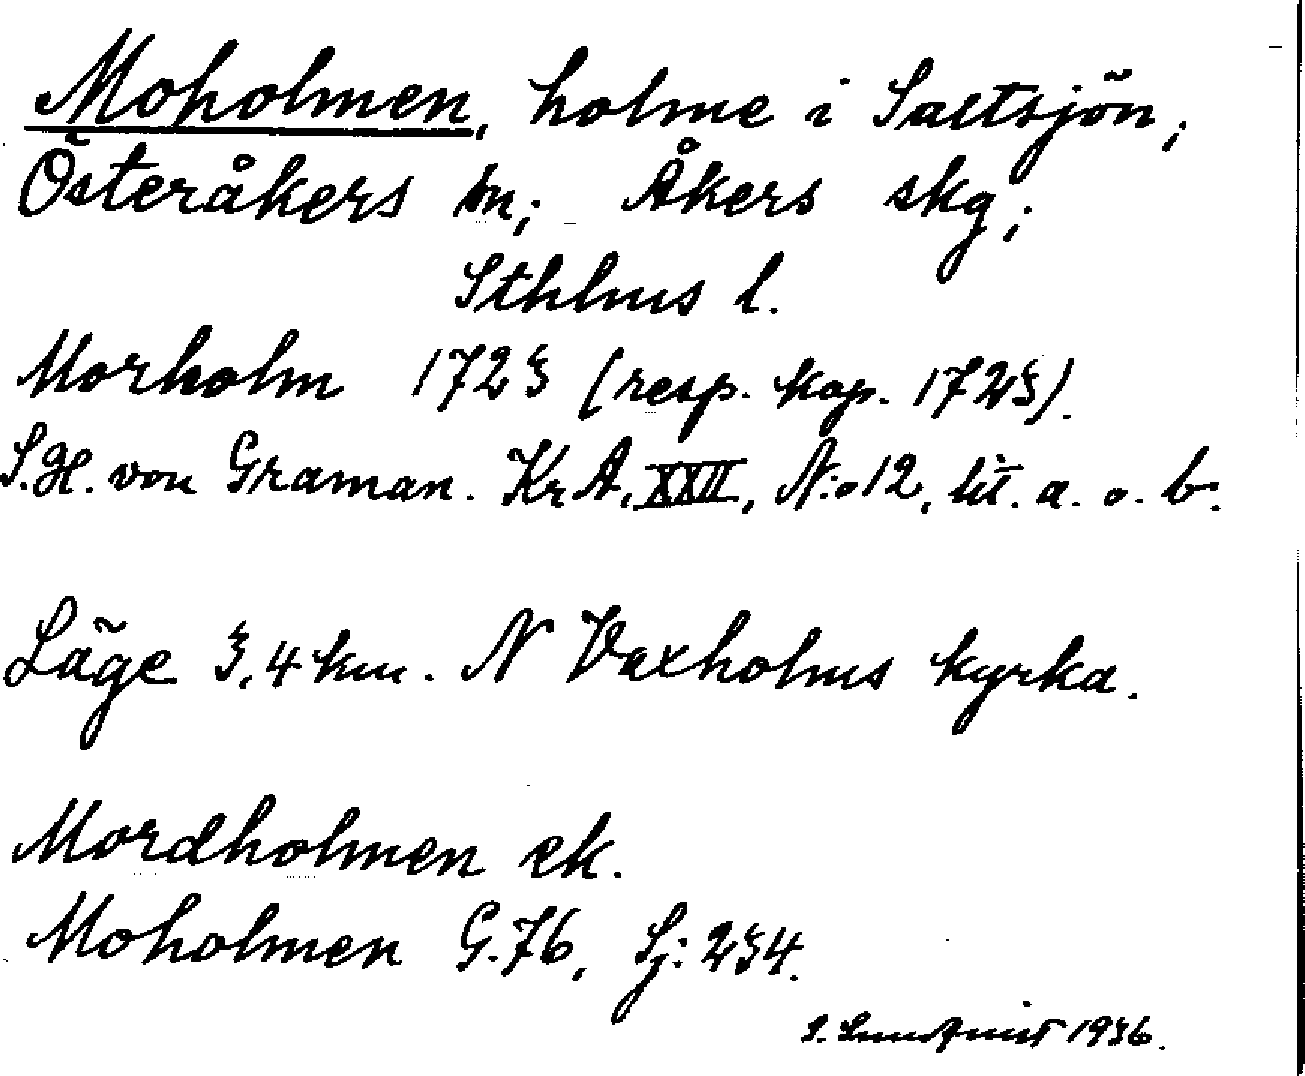 Moholmen, holme i Saltsjön,
Österåkers sn; Åkers skg;
Sthlms l.
Morholm 1723 (resp. kop. 1723).
S.H. von Graman. KrA, XXII, N:o 12, lit. a. o. b.
Läge 3,4 km. N Vaxholms kyrka.
Mordholmen ek.
Moholmen G.76, Sj: 234.
S. Lundquist 1936.